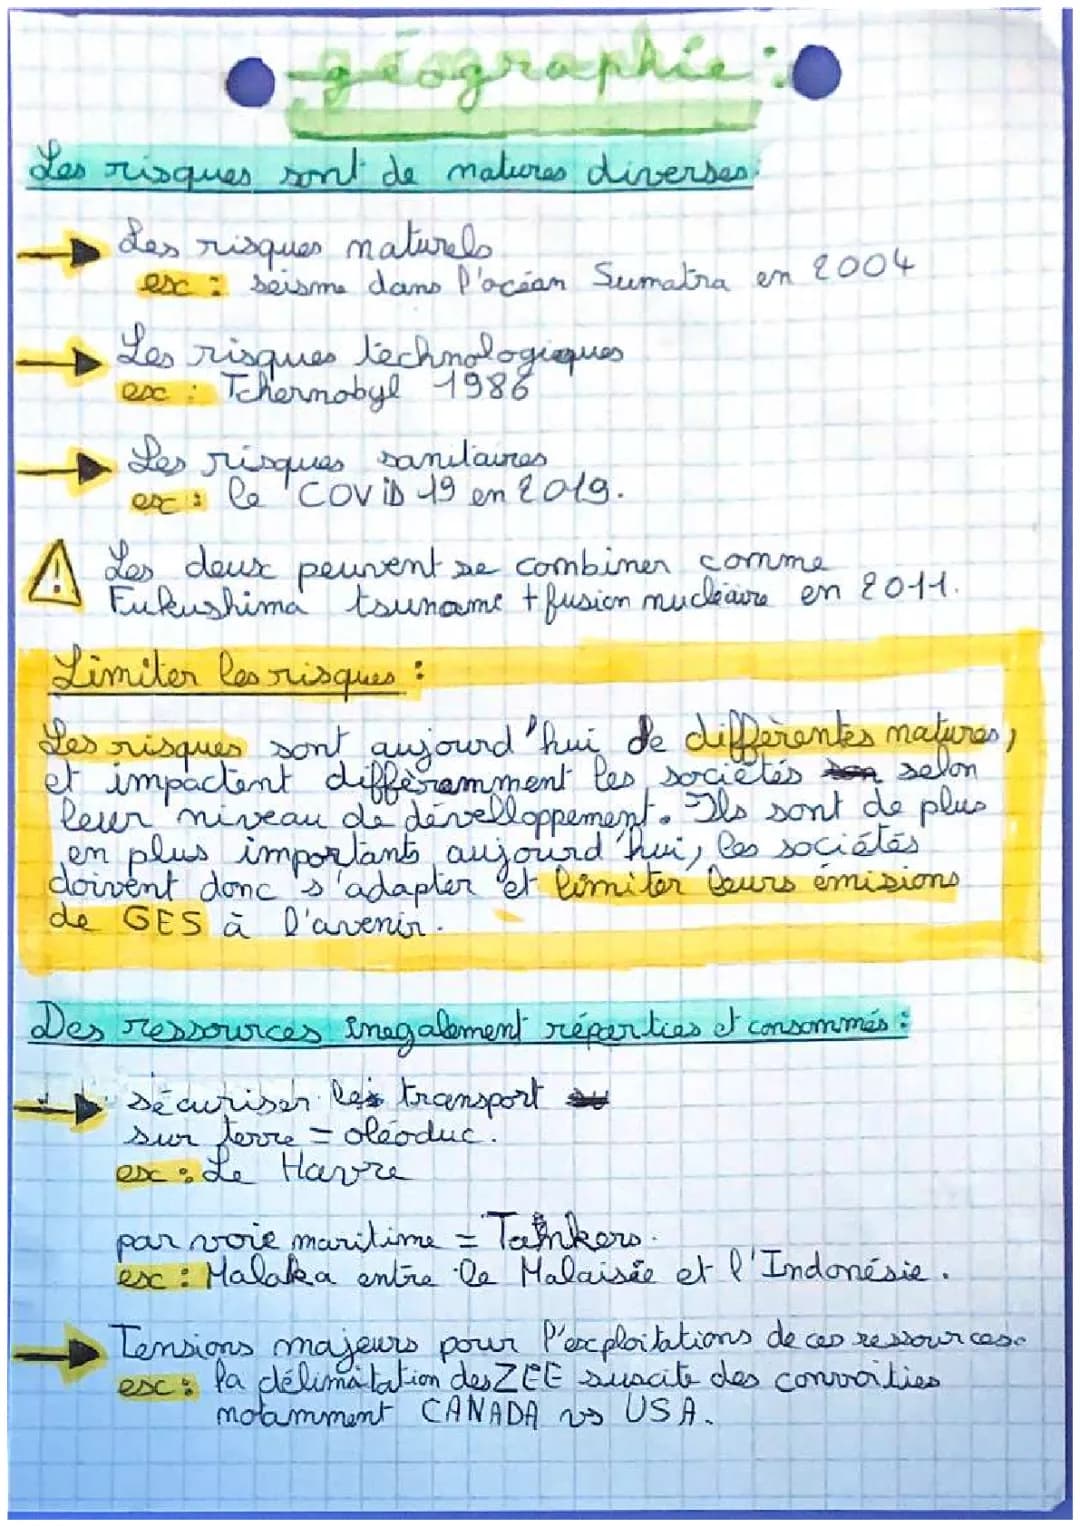 géographie :
Les risques sont de natures diverses:
Les risques naturels
ex : seisme dans l'océan Sumatra en 2004
Les risques technologiques
ex : Tchernobyl 1986
Les risques sanitaires
ex : le COViD 19 en 2019.
Les deux peuvent se combiner comme
Fukushima tsuname + fusion nucléaire en 2011.
Limiter les risques :
Les risques sont aujourd'hui de différentes natures,
et impactent différemment les sociétés selon
leur niveau de dévelloppement. Ils sont de plus
en plus importants aujourd'hui, les sociétés
doivent donc s'adapter et limiter leurs émisions
de GES à l'avenir.
Des ressources inegalement réperties et consommés :
sécuriser les transport
sur terre = oléoduc.
ex : Le Havre
par voie maritime = Tankers.
ex : Malaka entre le Malaisie et l'Indonésie.
Tensions majeurs pour l'exploitations de ces ressources.
ex : la délimitation des ZEE suscite des convoities
notamment CANADA vs USA.